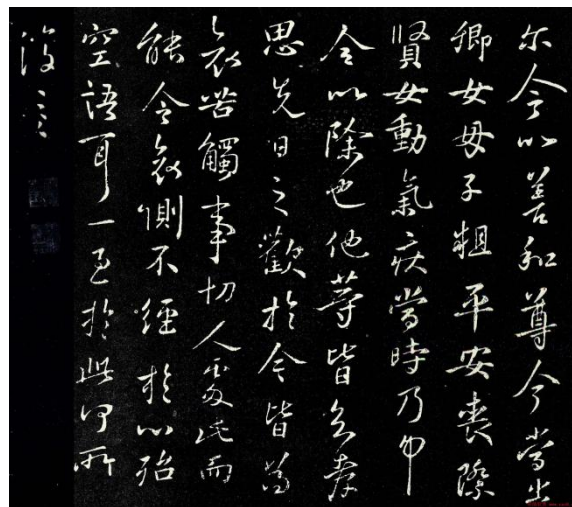 尒今以善和尊今當
卿女母子粗平安喪際
賢女動氣疾當時乃
今以除也他等皆
思先日之歡於今皆為
哀苦觸事切人處此而
能令哀惻不經於心殆
空語耳一至於此何所
復言